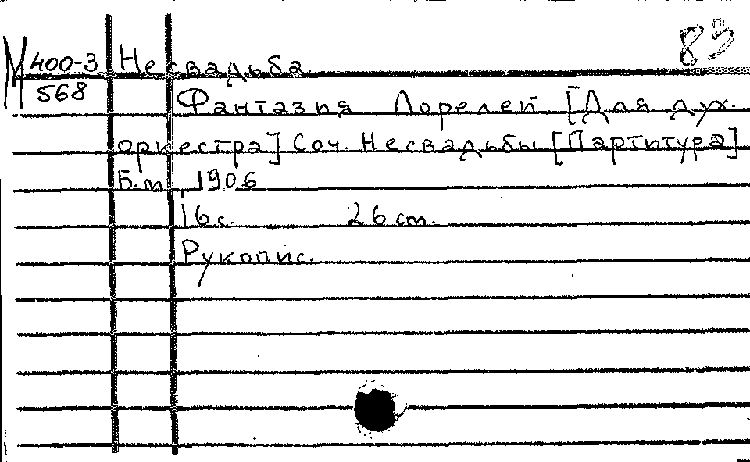 83
М 400-3 Несвадьба
568
Фантазия Лорелей [Для дух.
оркестра] Соч. Несвадьбы [Партитура]
Б.м., 1906
16 с. 26 cm.
Рукопис.